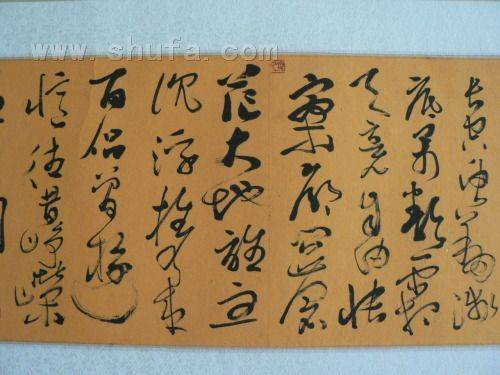 www.shufa.com
长空鱼翔浅
底萬類霜
天竞自由怅
寥廓问苍
茫大地谁主
沉浮携来
百侣曾游
忆往昔峥嵘